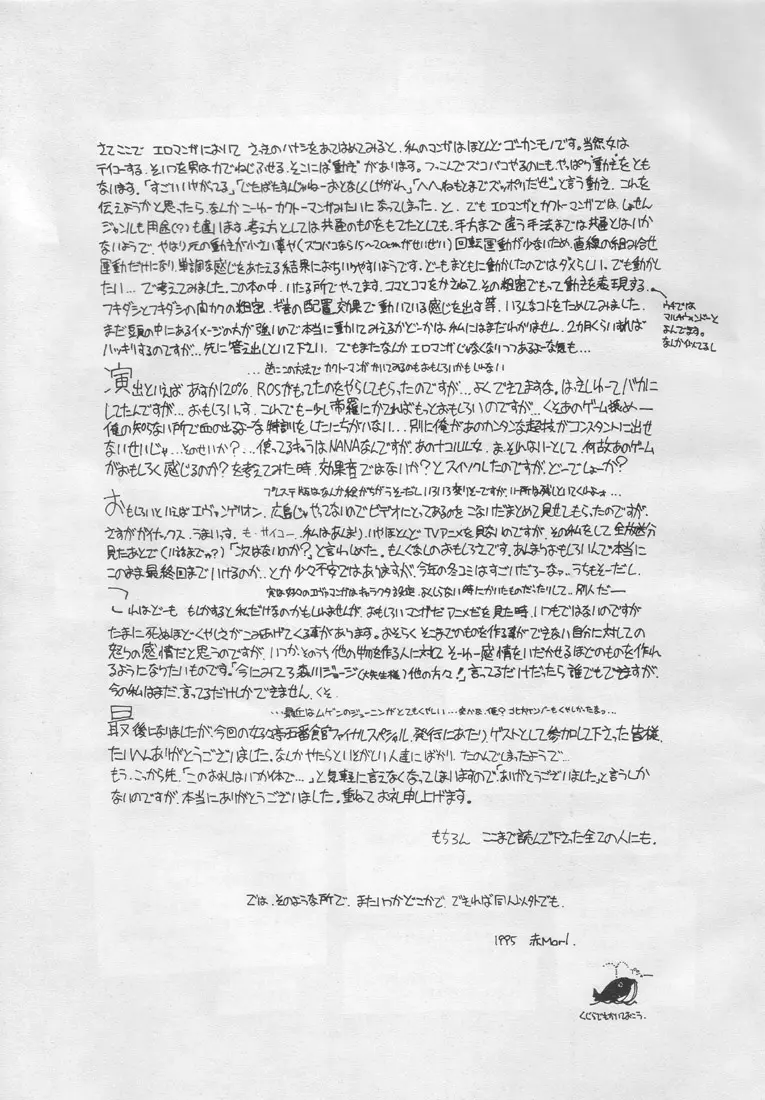 さてここで エロマンガにおいて うごきのハナシをあてはめてみると、私のマンガはほとんどゴーカンモノです。当然女は
テイコーする。そいつを男は力でねじふせる。そこには"動き"があります。つっこんでズコバコやるのにも、やっぱり"動き"をとも
ないます。「すごいいやがってる」「じたばたすんじゃねーおとなしくしやがれ」「へへへねもとまでズッポリだぜ」と言う動き、これを
伝えようかと思ったら、なんか こーゆーカクトーマンガみたいになってしまった、と。でもエロマンガとカクトーマンガでは、しょせん
ジャンルも用途(?)も違います。考え方としては共通のものをもてたとしても、手方まで違う手法までは共通とはいか
ないようで、やはり死の動きが小さい事や(ズコバコなら15〜20cmがせいぜい)回転運動が少ないため、直線の組み合せ
運動だけになり、単調な感じをあたえる結果におちいりやすいようです。どーもまともに動かしたのではダメらしい。でも動かし
たい…で考えてみました。この本の中、いたる所でやってます。コマとコマをかさねて、その粗密でもって動きを表現する。
フキダシとフキダシの向カクの粗密、その配置効果で動いている感じを出す等、いろんなコトをためしてみました。
ウチでは
マルチウィンドーと
よんでます。
なんか似てるし
まだ頭の中にあるイメージの方が強いので本当に動いてみえるかどーかは私にはまだわかりません。2カ月くらいすれば
ハッキリするのですが…先に答え出しといて下さい。でもまたなんかエロマンガじゃなくなりつつあるよーな気も…
…逆にこの方法でカクトーマンガかいてみるのもおもしろいかもしんない
演出といえばあすか120%。ROSがもってたのをやらしてもらったのですが…よくできてますよな。はっきしゆーてバカに
してたんですが…おもしろいっす。これでも一少し市羅にかてればもっとおもしろいのですが…くそあのゲーム極めー
俺の知らない所で血の出るよーな特訓をしたにちがいない…別に俺があのカンタンな超技がコンスタントに出せ
ないせいじゃ…そのせいか?…使ってるキャラはNANAなんですが、あのナコルル女。ま、それはいーとして、何故あのゲーム
がおもしろく感じるのか?を考えてみた時、効果音ではないか?とスイソクしたのですが、どーでしょーか?
プレステ版はなんか絵がちがうそーだしいろいろ変りそーですが、いー所は残しといてくれよォ…
おもしろいといえばエヴァンゲリオン。広島じゃやってないのでビデオにとってあるのをこないだまとめて見せてもらったのですが、
さすがガイナックス。うまいっす。も・サイコー。私はあんまり、いやほとんどTVアニメを見ないのですが、その私をして全放送分
見たあとで(11話までかァ?)「次はないのか?」と言わしめた。もんくなしのおもしろさです。あんまりおもしろいんで本当に
このまま最終回までいけるのか…とか少々不安ではありますが、今年の冬コミはすごいだろーなァ…うちもそーだし。
実は好みのエヴァマンガはキャラクタ設定、よくしらない時にかいたものだったりして…別人だー
これはどーも もしかすると私だけなのかもしれませんが、おもしろいマンガだアニメだを見た時、いつもではないのですが
たまに死ぬほどくやしさがこみあげてくる事があります。おそらくそこまでのものを作る事ができない自分に対しての
怒りの感情だと思うのですが、いつか、そのうち他の物を作る人に対して そーゆー感情をいだかせるほどのものを作れ
るようになりたいものです。「今にみてろ森川ジョージ(大先生様)他の方々!」言ってるだけだったら誰でもできますが、
今の私はまだ、言ってるだけしかできません。くそ。
…最近はムゲンのジューニンがとてもくやしい…
最後になりましたが、今回の女ふみ亭五番館ファイナルスペシャル、発行にあたり、ゲストとして参加して下さった皆様、
たいへんありがとうございました。なんかやたらといそがしい人達にばかり、たのんでしまったようで…
もう、こっから先、「このおれいはいつか体で…」と気軽に言えなくなってしまいますので「ありがとうございました」と言うしか
ないのですが、本当にありがとうございました。重ねてお礼申し上げます。
もちろん ここまで読んで下さった全ての人にも。
では、そのような所で、またいつかどこかで、できれば同人以外でも。
1995 赤Mori.
くじらでもかいておこう。